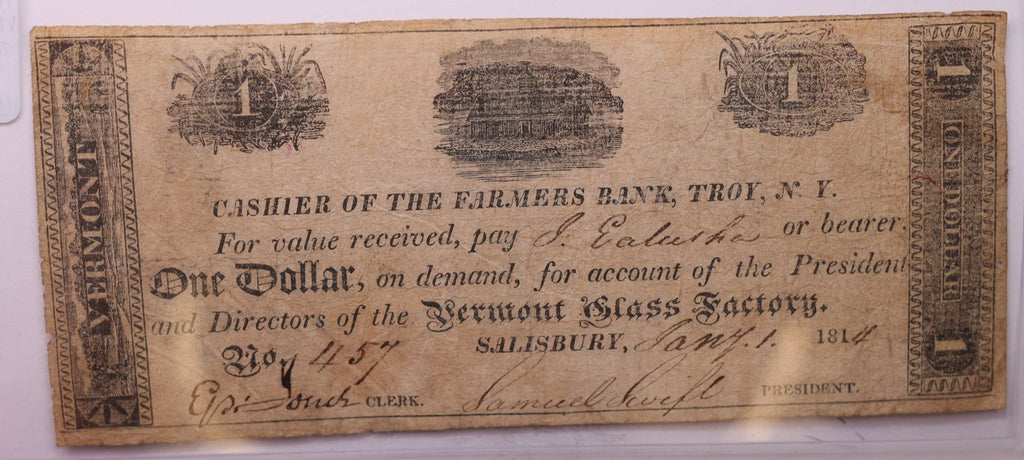 1
1
VERMONT
1
ONE DOLLAR
1
CASHIER OF THE FARMERS BANK, TROY, N. Y.
For value received, pay J. Galusha or bearer,
One Dollar, on demand, for account of the President
and Directors of the Vermont Glass Factory.
No. 457 SALISBURY, Jany. 1. 1814
CLERK. Samuel Swift PRESIDENT.